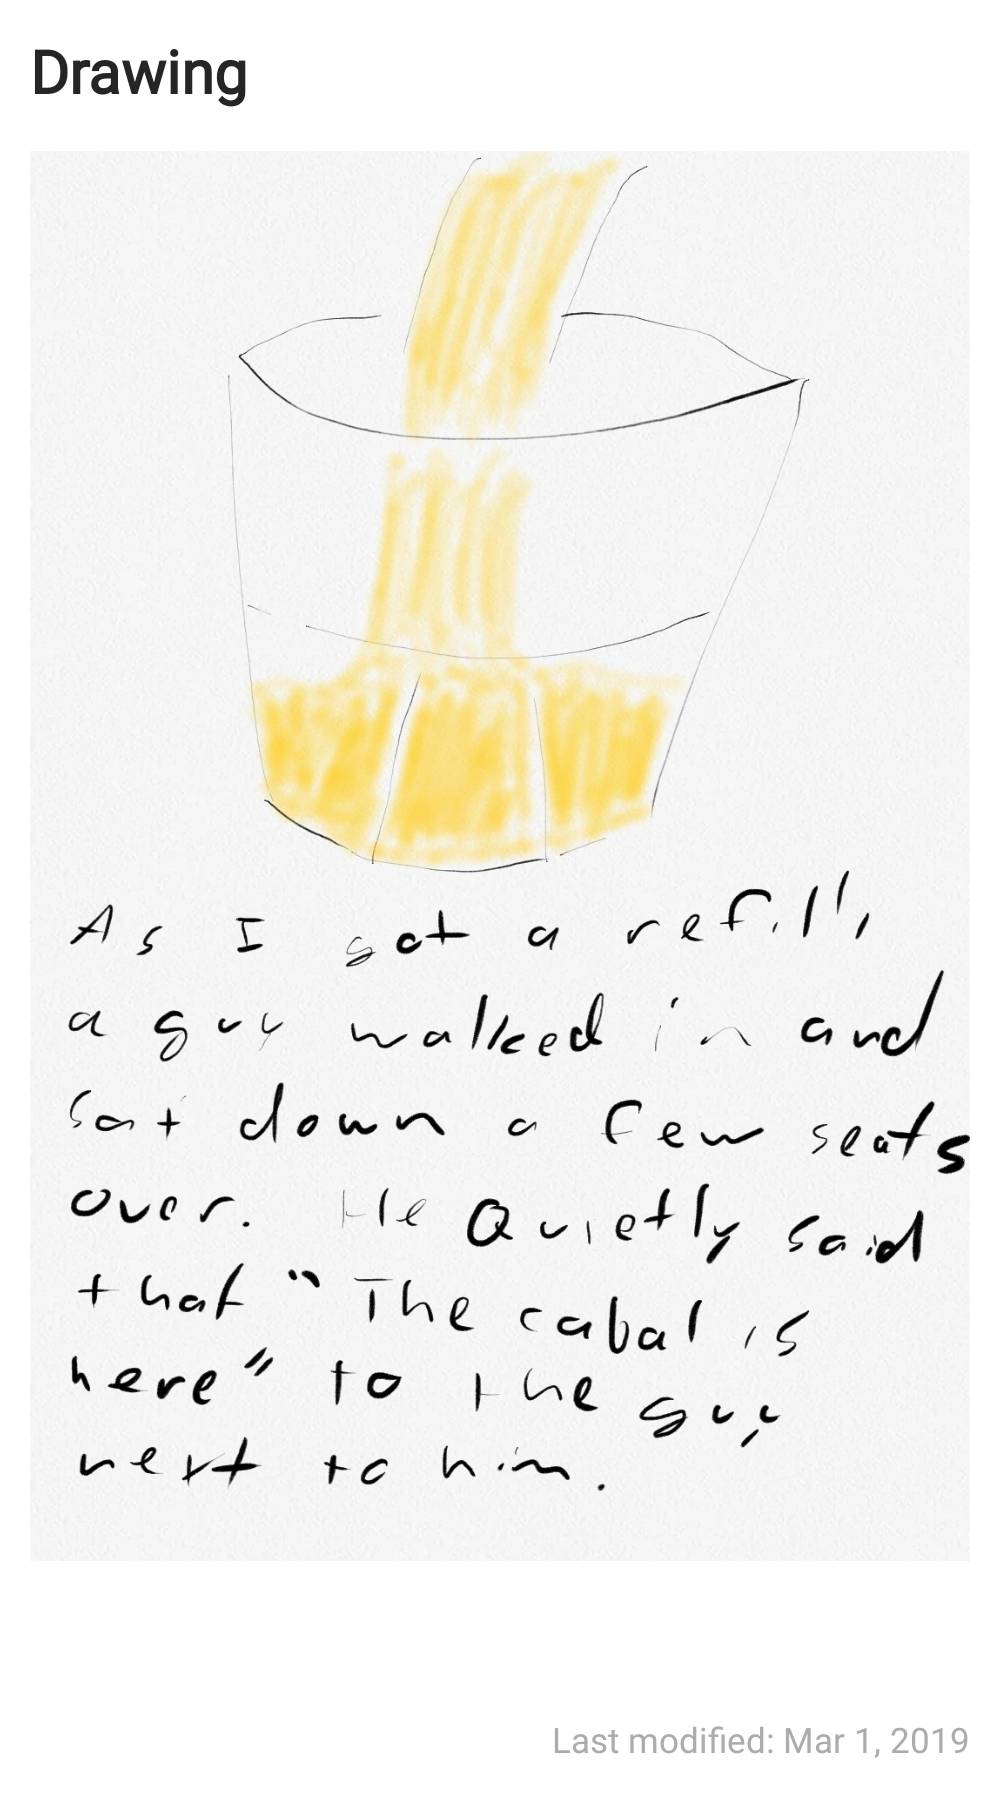 Drawing
As I got a refill,
a guy walked in and
sat down a few seats
over. He Quietly said
that "The cabal is
here" to the guy
next to him.
Last modified: Mar 1, 2019